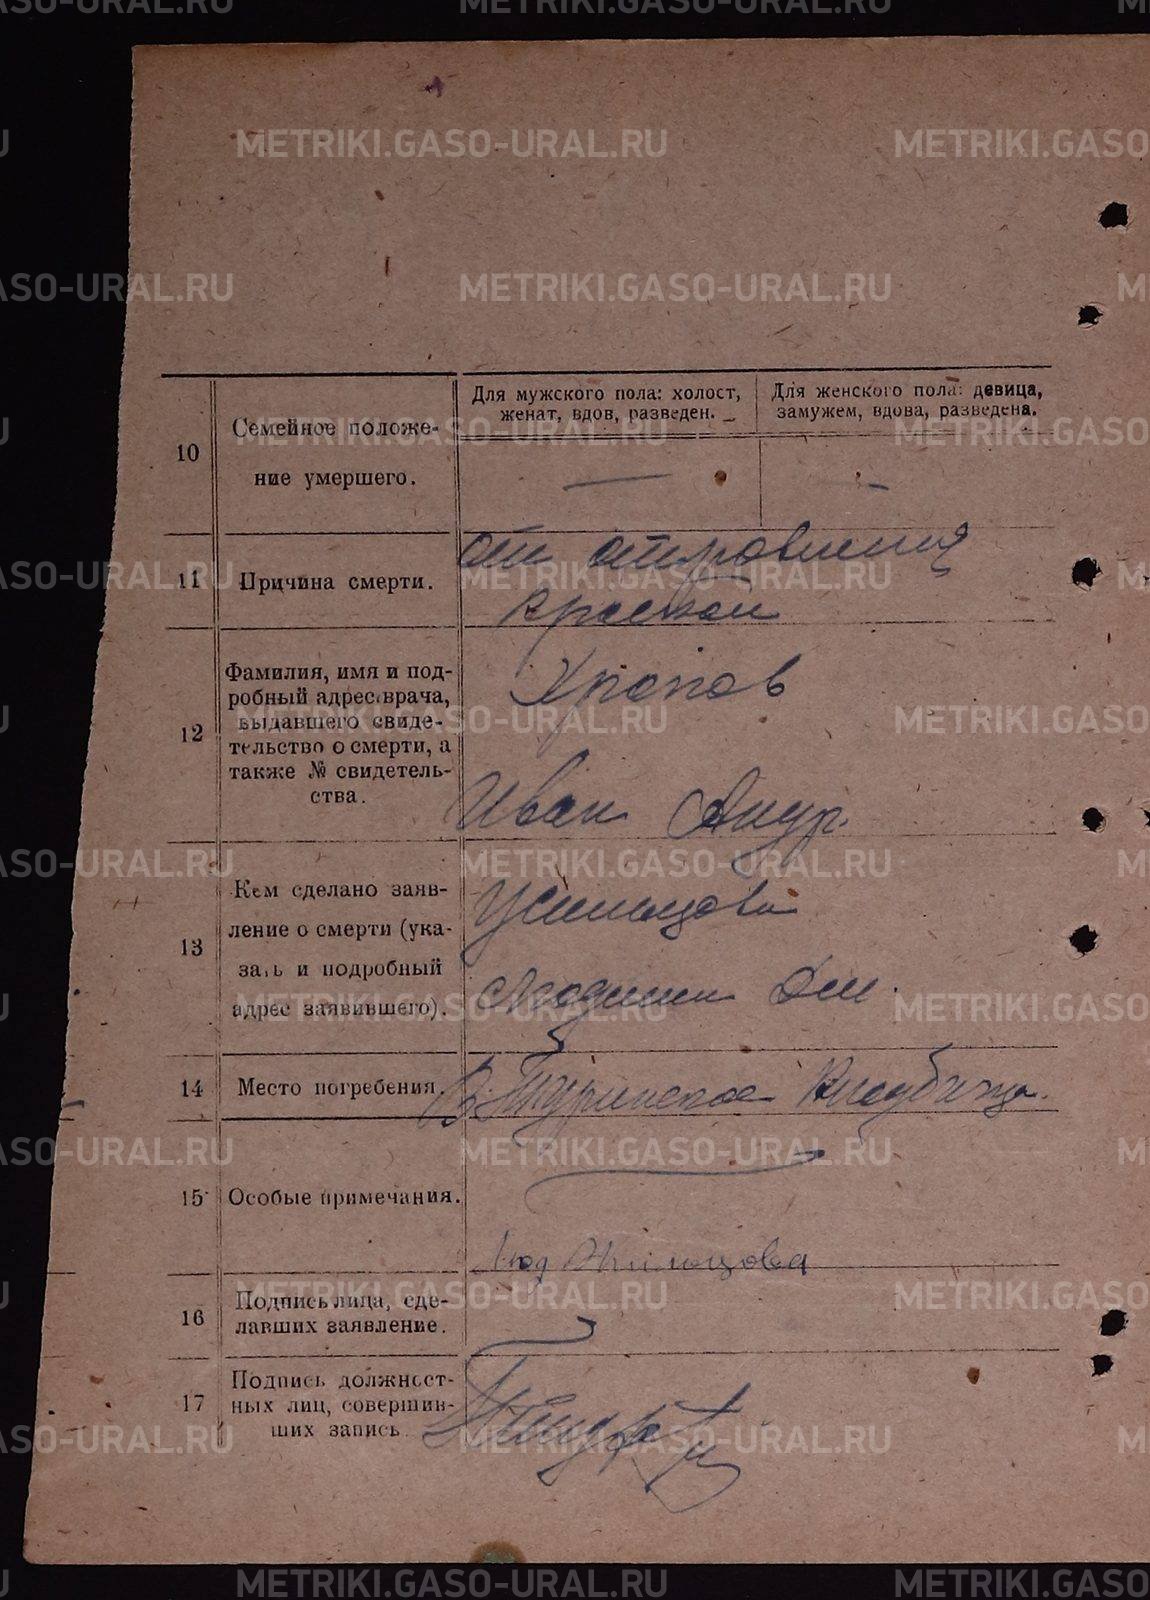 Для мужского пола: холост,
женат, вдов, разведен.
Для женского пола: девица,
замужем, вдова, разведена.
10
Семейное положе-
ние умершего.
—
—
11
Причина смерти.
от отравления
краской
12
Фамилия, имя и под-
робный адрес врача,
выдавшего свиде-
тельство о смерти, а
также № свидетель-
ства.
Хропов
Иван
13
Кем сделано заяв-
ление о смерти (ука-
зать и подробный
адрес заявившего).
14
Место погребения.
В. Туринское Кладбище.
15
Особые примечания.
16
Подпись лица, сде-
лавших заявление.
17
Подпись должност-
ных лиц, совершив-
ших запись.
METRIKI.GASO-URAL.RU